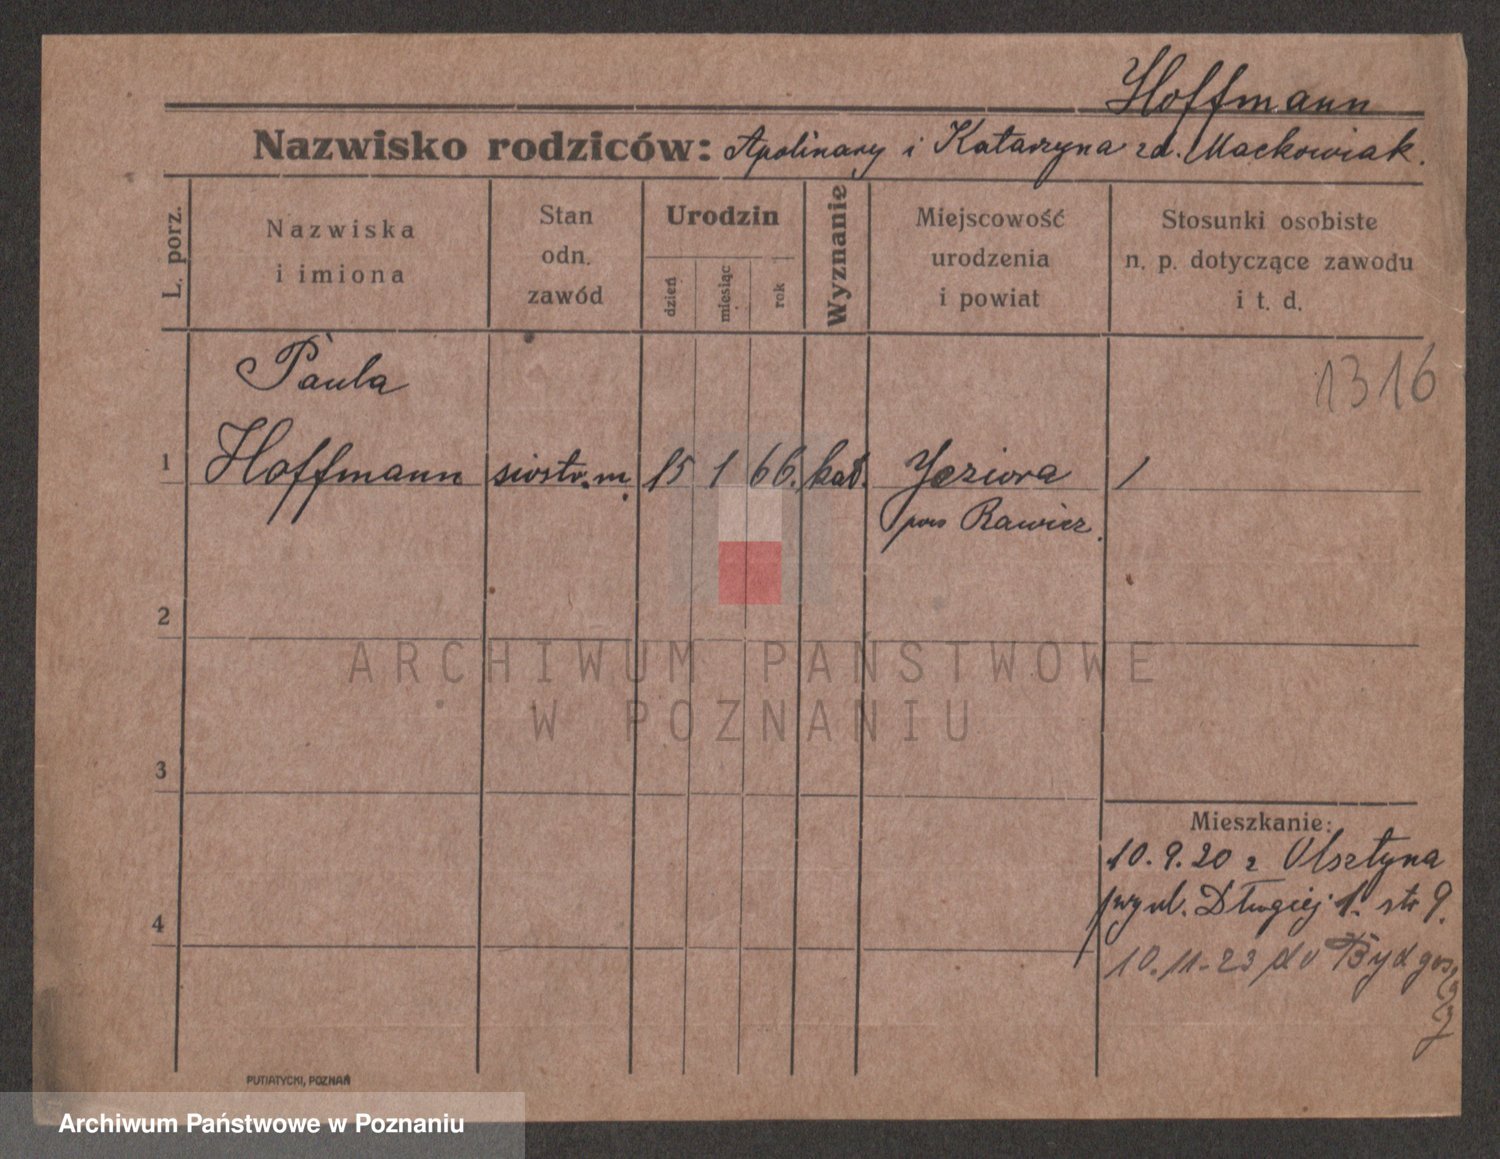 Hoffmann
Nazwisko rodziców: Apolinary i Katarzyna zd. Maćkowiak.
L. porz.
Nazwiska
i imiona
Stan
odn.
zawód
Urodzin
dzień
miesiąc
rok
Wyznanie
Miejscowość
urodzenia
i powiat
Stosunki osobiste
n. p. dotyczące zawodu
i t. d.
1316
Paula
1 Hoffmann siostr. m. 15 1 66. kat. Jeziora /
pow Rawicz.
2
ARCHIWUM PAŃSTWOWE
W POZNANIU
3
Mieszkanie:
10.9.20 z Olsztyna
przy ul. Długiej 1. str 9.
4
10.11-23 do Bydgoszczy
PUTIATYCKI, POZNAŃ
Archiwum Państwowe w Poznaniu